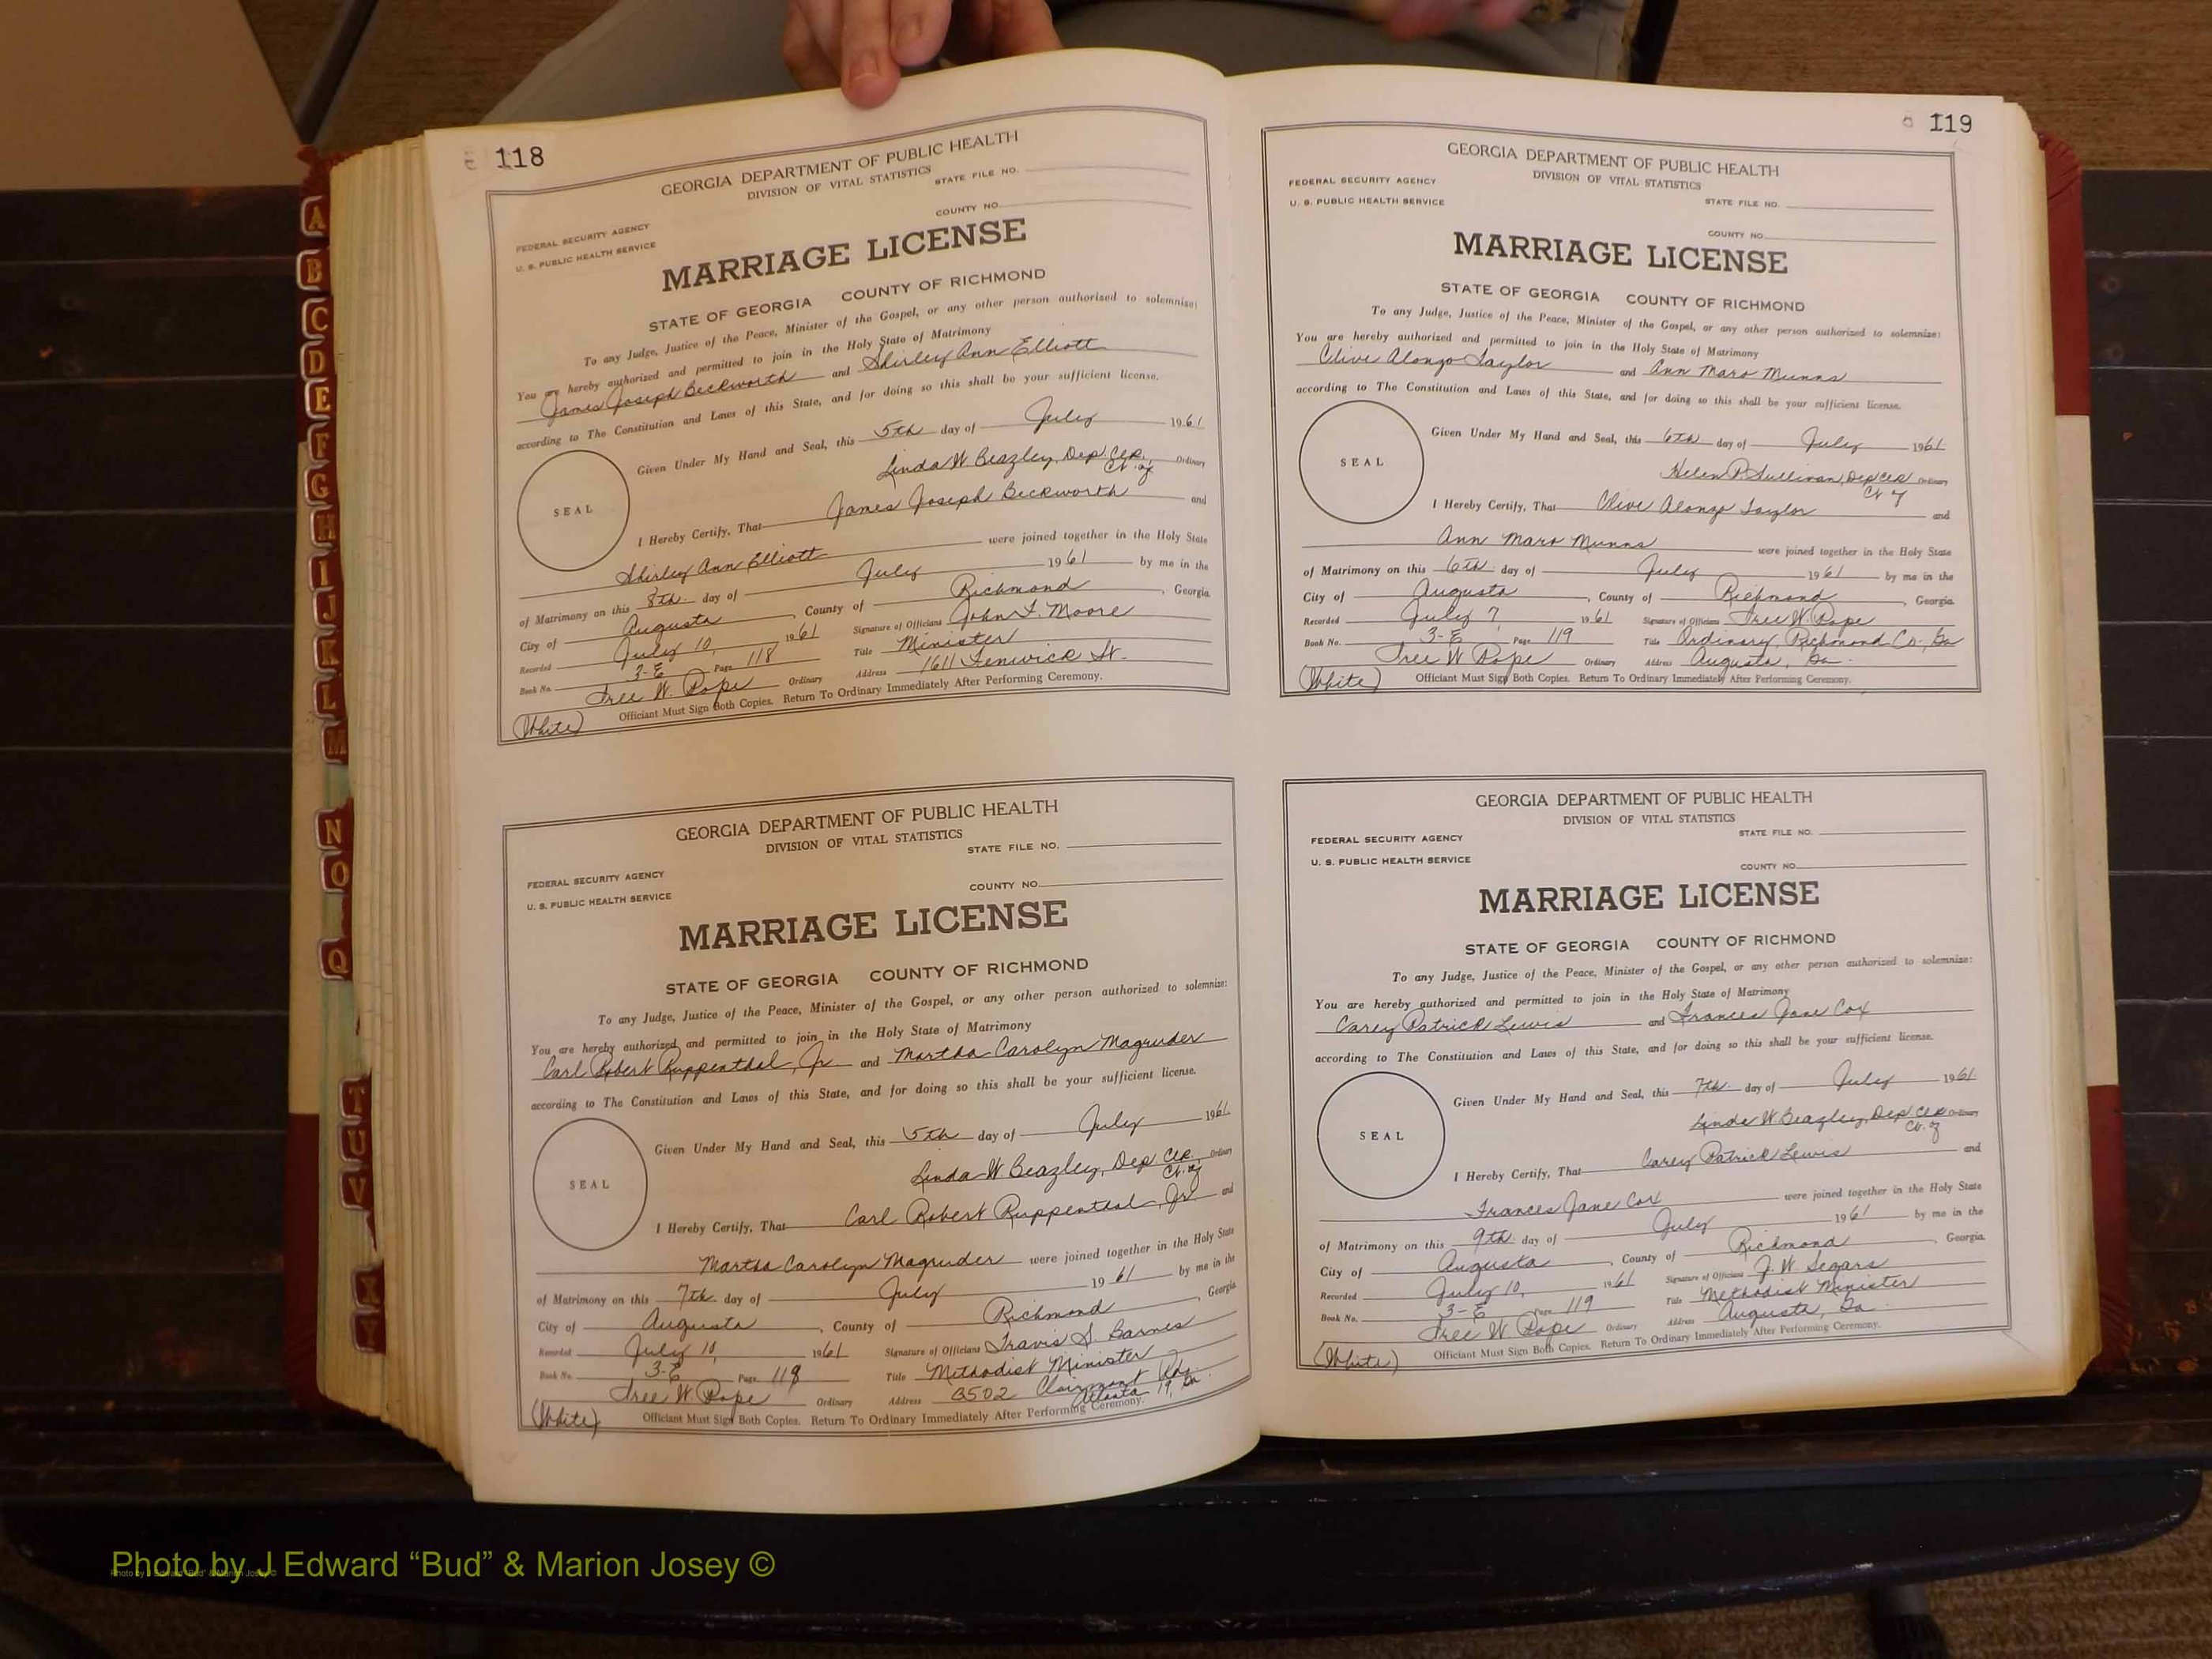 118
GEORGIA DEPARTMENT OF PUBLIC HEALTH
DIVISION OF VITAL STATISTICS
STATE FILE NO.
COUNTY NO.
FEDERAL SECURITY AGENCY
U. S. PUBLIC HEALTH SERVICE
MARRIAGE LICENSE
STATE OF GEORGIA COUNTY OF RICHMOND
To any Judge, Justice of the Peace, Minister of the Gospel, or any other person authorized to solemnize:
You are hereby authorized and permitted to join in the Holy State of Matrimony
James Joseph Beckworth and Shirley Ann Elliott
according to The Constitution and Laws of this State, and for doing so this shall be your sufficient license.
Given Under My Hand and Seal, this 5th day of July 1961
Linda W Beazley, Dep Clk, Ordinary
Ct. of
SEAL
I Hereby Certify, That James Joseph Beckworth and
Shirley Ann Elliott were joined together in the Holy State
of Matrimony on this 8th day of July 1961 by me in the
City of Augusta, County of Richmond, Georgia
Recorded July 10, 1961 Signature of Officiant John F. Moore
Book No. 3-E Page 118 Title Minister
Tree W. Pope Ordinary Address 1611 Fenwick St.
(White) Officiant Must Sign Both Copies. Return To Ordinary Immediately After Performing Ceremony.
GEORGIA DEPARTMENT OF PUBLIC HEALTH
DIVISION OF VITAL STATISTICS
STATE FILE NO.
FEDERAL SECURITY AGENCY
COUNTY NO.
U. S. PUBLIC HEALTH SERVICE
MARRIAGE LICENSE
STATE OF GEORGIA COUNTY OF RICHMOND
To any Judge, Justice of the Peace, Minister of the Gospel, or any other person authorized to solemnize:
You are hereby authorized and permitted to join in the Holy State of Matrimony
Carl Robert Ruppenthal, Jr. and Martha Carolyn Magruder
according to The Constitution and Laws of this State, and for doing so this shall be your sufficient license.
Given Under My Hand and Seal, this 5th day of July 1961
Linda W Beazley, Dep Clk, Ordinary
Ct. of
SEAL
I Hereby Certify, That Carl Robert Ruppenthal, Jr and
Martha Carolyn Magruder were joined together in the Holy State
of Matrimony on this 7th day of July 1961 by me in the
City of Augusta, County of Richmond, Georgia
Recorded July 10, 1961 Signature of Officiant Travis S. Barnes
Book No. 3-E Page 118 Title Methodist Minister
Tree W Pope Ordinary Address 3502 Clairmont Rd.
Atlanta 19, Ga.
(White) Officiant Must Sign Both Copies. Return To Ordinary Immediately After Performing Ceremony.
119
GEORGIA DEPARTMENT OF PUBLIC HEALTH
DIVISION OF VITAL STATISTICS
FEDERAL SECURITY AGENCY
U. S. PUBLIC HEALTH SERVICE
STATE FILE NO.
COUNTY NO.
MARRIAGE LICENSE
STATE OF GEORGIA COUNTY OF RICHMOND
To any Judge, Justice of the Peace, Minister of the Gospel, or any other person authorized to solemnize:
You are hereby authorized and permitted to join in the Holy State of Matrimony
Clive Alonzo Taylor and Ann Maro Munns
according to The Constitution and Laws of this State, and for doing so this shall be your sufficient license.
Given Under My Hand and Seal, this 6th day of July 1961
Helen P. Sullivan, Dep Clk Ordinary
Ct of
SEAL
I Hereby Certify, That Clive Alonzo Taylor and
Ann Maro Munns were joined together in the Holy State
of Matrimony on this 6th day of July 1961 by me in the
City of Augusta, County of Richmond, Georgia
Recorded July 7, 1961 Signature of Officiant Tree W. Pope
Book No. 3-E Page 119 Title Ordinary, Richmond Co., Ga
Tree W Pope Ordinary Address Augusta, Ga.
(White) Officiant Must Sign Both Copies. Return To Ordinary Immediately After Performing Ceremony.
GEORGIA DEPARTMENT OF PUBLIC HEALTH
DIVISION OF VITAL STATISTICS
FEDERAL SECURITY AGENCY
STATE FILE NO.
U. S. PUBLIC HEALTH SERVICE
COUNTY NO.
MARRIAGE LICENSE
STATE OF GEORGIA COUNTY OF RICHMOND
To any Judge, Justice of the Peace, Minister of the Gospel, or any other person authorized to solemnize:
You are hereby authorized and permitted to join in the Holy State of Matrimony
Carey Patrick Lewis and Frances Jane Cox
according to The Constitution and Laws of this State, and for doing so this shall be your sufficient license.
Given Under My Hand and Seal, this 7th day of July 1961
Linda W Beazley, Dep Clk Ordinary
Ct. of
SEAL
I Hereby Certify, That Carey Patrick Lewis and
Frances Jane Cox were joined together in the Holy State
of Matrimony on this 9th day of July 1961 by me in the
City of Augusta, County of Richmond, Georgia
Recorded July 10, 1961 Signature of Officiant J. W. Segars
Book No. 3-E Page 119 Title Methodist Minister
Tree W Pope Ordinary Address Augusta, Ga.
(White) Officiant Must Sign Both Copies. Return To Ordinary Immediately After Performing Ceremony.
A
B
C
D
E
F
G
H
I
J
K
L
M
N
O
Q
T
U
V
X
Y
Photo by J Edward “Bud” & Marion Josey ©
Photo by J Edward “Bud” & Marion Josey ©